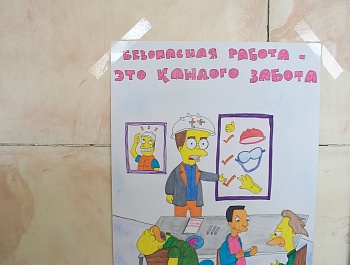 БЕЗОПАСНАЯ РАБОТА -
ЭТО КАЖДОГО ЗАБОТА